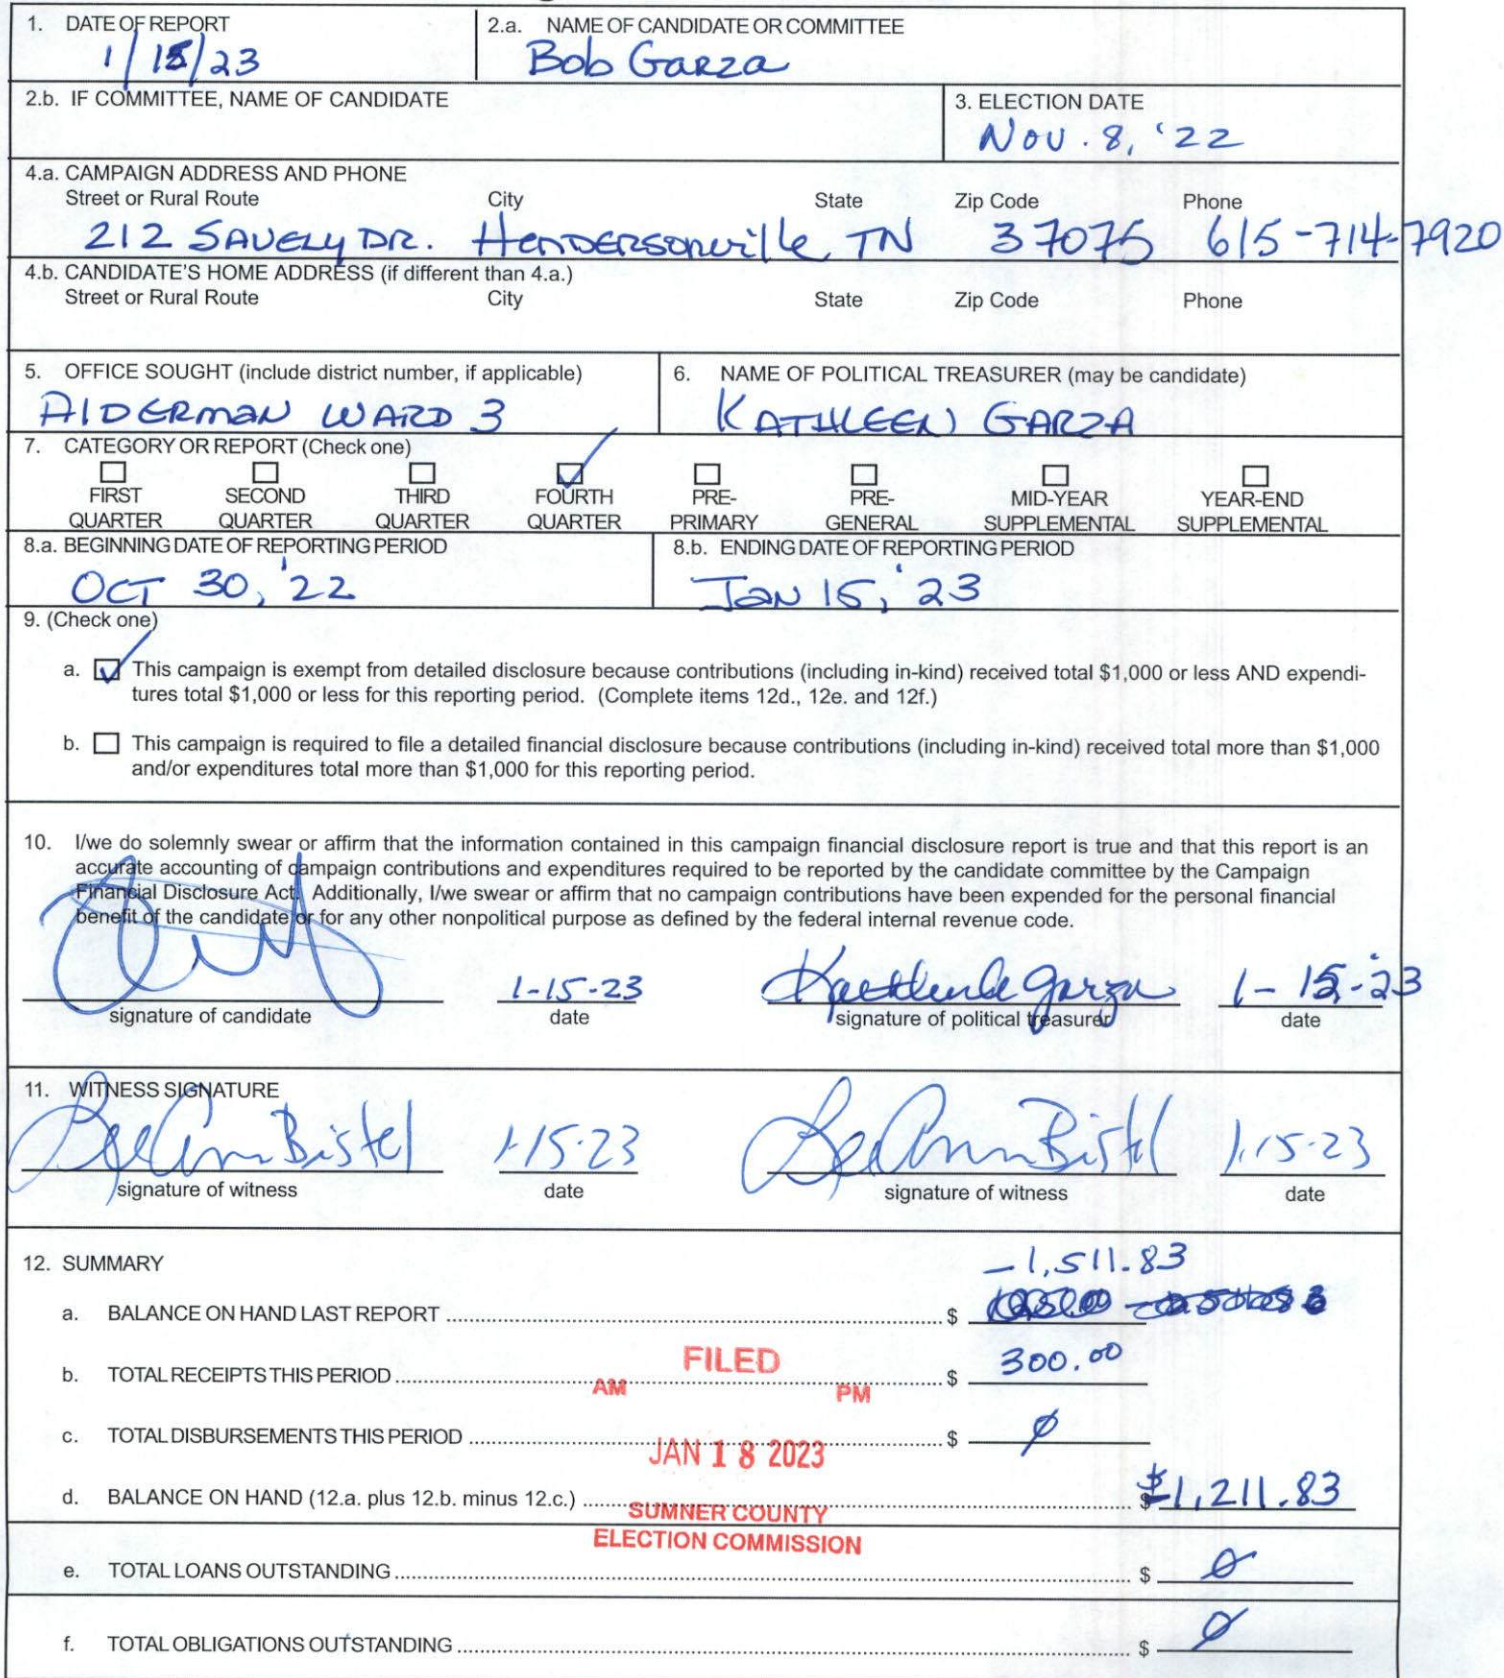 1. DATE OF REPORT
1/15/23
2.a. NAME OF CANDIDATE OR COMMITTEE
Bob Garza
2.b. IF COMMITTEE, NAME OF CANDIDATE
3. ELECTION DATE
Nov. 8, '22
4.a. CAMPAIGN ADDRESS AND PHONE
Street or Rural Route City State Zip Code Phone
212 SAVELY DR. HENDERSONville TN 37075 615-714-7920
4.b. CANDIDATE'S HOME ADDRESS (if different than 4.a.)
Street or Rural Route City State Zip Code Phone
5. OFFICE SOUGHT (include district number, if applicable)
AlDERMAN WARD 3
6. NAME OF POLITICAL TREASURER (may be candidate)
KATHLEEN GARZA
7. CATEGORY OR REPORT (Check one)
FIRST SECOND THIRD FOURTH PRE- PRE- MID-YEAR YEAR-END
QUARTER QUARTER QUARTER QUARTER PRIMARY GENERAL SUPPLEMENTAL SUPPLEMENTAL
8.a. BEGINNING DATE OF REPORTING PERIOD
OCT 30, '22
8.b. ENDING DATE OF REPORTING PERIOD
JAN 15, '23
9. (Check one)
a. This campaign is exempt from detailed disclosure because contributions (including in-kind) received total $1,000 or less AND expendi-
tures total $1,000 or less for this reporting period. (Complete items 12d., 12e. and 12f.)
b. This campaign is required to file a detailed financial disclosure because contributions (including in-kind) received total more than $1,000
and/or expenditures total more than $1,000 for this reporting period.
10. I/we do solemnly swear or affirm that the information contained in this campaign financial disclosure report is true and that this report is an
accurate accounting of campaign contributions and expenditures required to be reported by the candidate committee by the Campaign
Financial Disclosure Act. Additionally, I/we swear or affirm that no campaign contributions have been expended for the personal financial
benefit of the candidate or for any other nonpolitical purpose as defined by the federal internal revenue code.
1-15-23 Garza 1-15-'23
signature of candidate date signature of political treasurer date
11. WITNESS SIGNATURE
LeeAnn Bistel 1-15-23 LeeAnn Bistel 1-15-23
signature of witness date signature of witness date
12. SUMMARY
-1,511.83
a. BALANCE ON HAND LAST REPORT $
b. TOTAL RECEIPTS THIS PERIOD $ 300.00
FILED
AM PM
c. TOTAL DISBURSEMENTS THIS PERIOD $ Ø
JAN 18 2023
d. BALANCE ON HAND (12.a. plus 12.b. minus 12.c.) $ 1,211.83
SUMNER COUNTY
ELECTION COMMISSION
e. TOTAL LOANS OUTSTANDING $ Ø
f. TOTAL OBLIGATIONS OUTSTANDING $ Ø